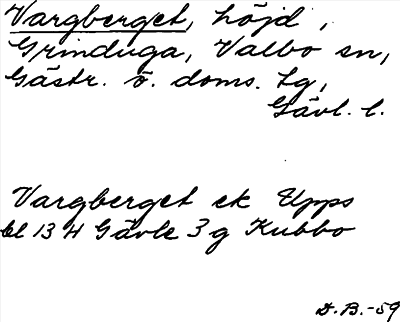 Vargberget, höjd,
Grinduga, Valbo sn,
Gästr. ö. doms. tg,
Gävl. l.
Vargberget ek Upps
bl 13 H Gävle 3 g Kubbo
D.B.-59